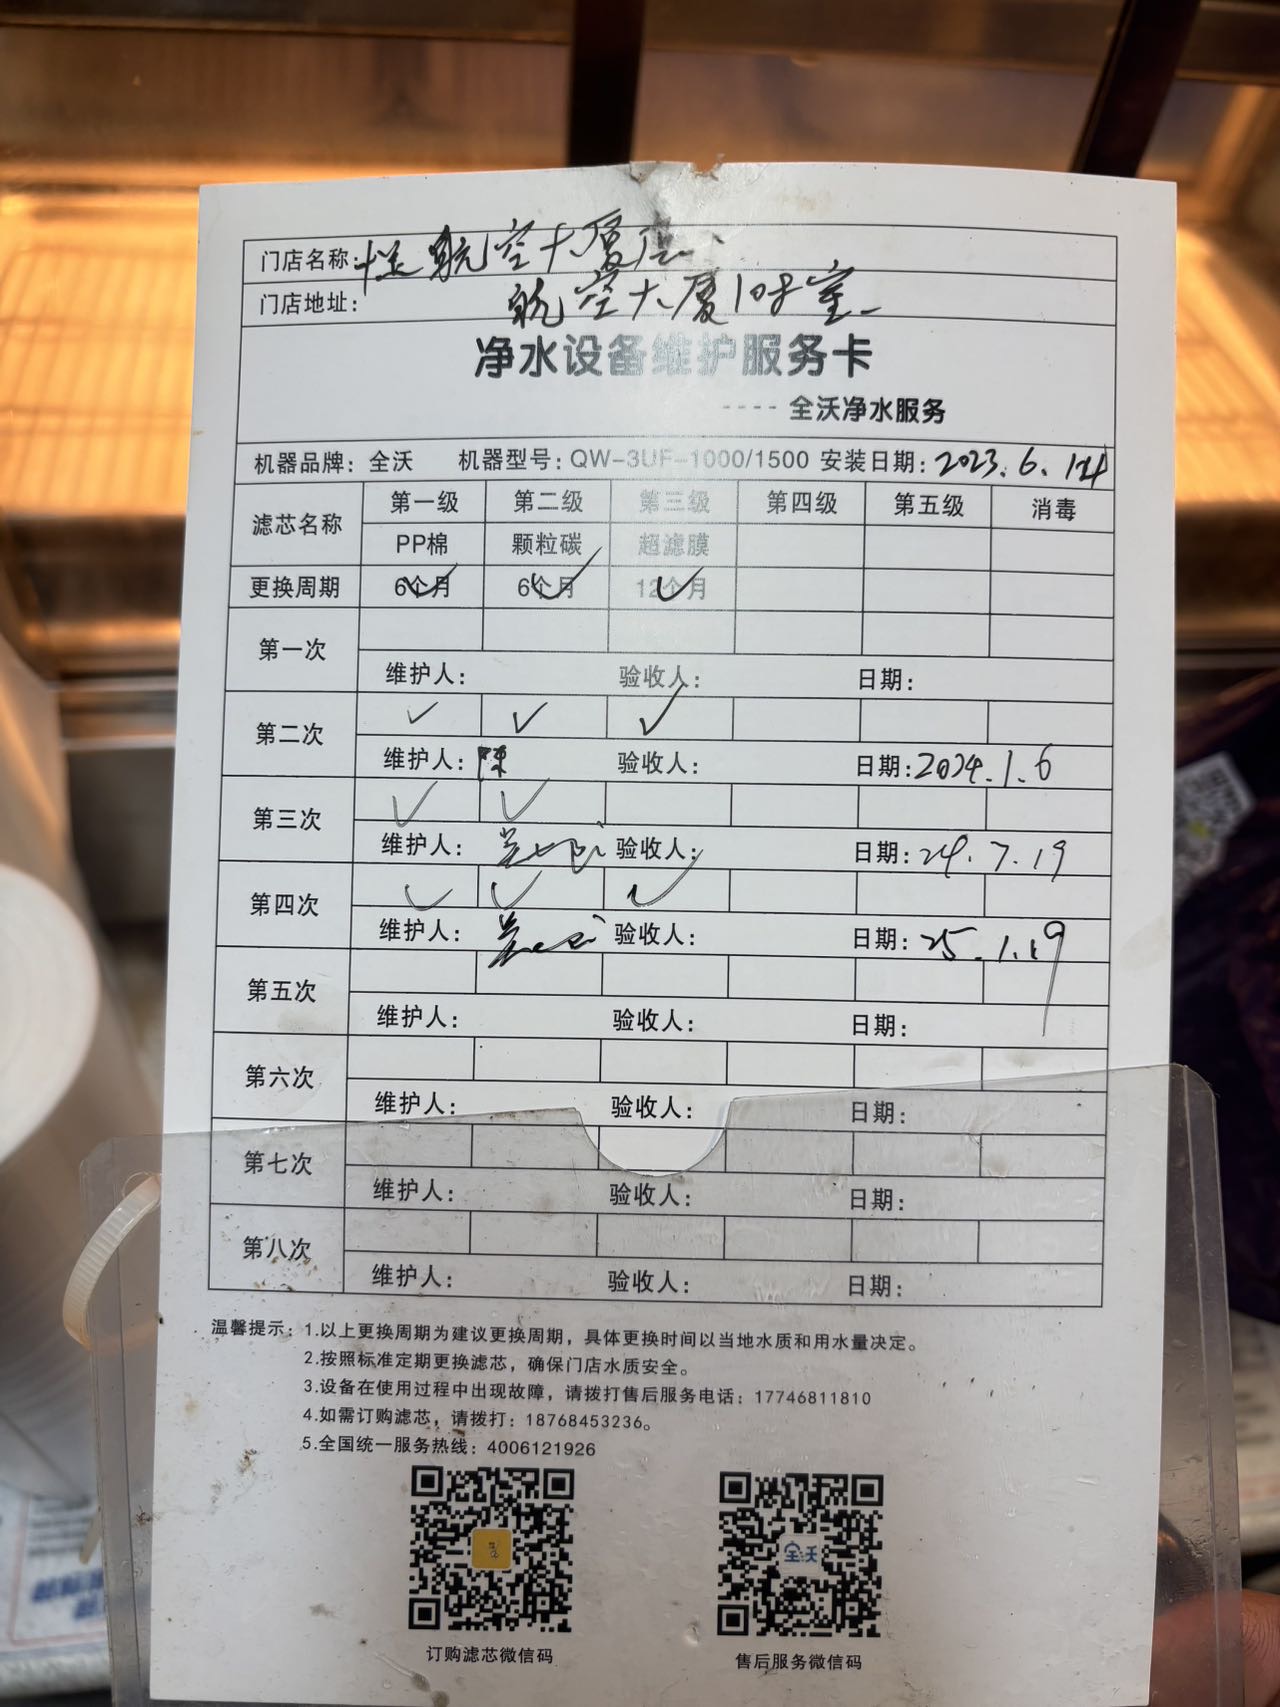 门店名称: 航空大厦店
门店地址: 航空大厦108室
净水设备维护服务卡
---- 全沃净水服务
机器品牌: 全沃 机器型号: QW-3UF-1000/1500 安装日期: 2023.6.
滤芯名称 第一级 第二级 第三级 第四级 第五级 消毒
PP棉 颗粒碳 超滤膜
更换周期 6个月 6个月 12个月
第一次
维护人: 验收人: 日期:
第二次 ✓ ✓ ✓
维护人: 陈 验收人: 日期: 2024.1.6
第三次 ✓ ✓
维护人: 验收人: 日期: 24.7.19
第四次 ✓ ✓ ✓
维护人: 验收人: 日期: 25.1.19
第五次
维护人: 验收人: 日期:
第六次
维护人: 验收人: 日期:
第七次
维护人: 验收人: 日期:
第八次
维护人: 验收人: 日期:
温馨提示: 1.以上更换周期为建议更换周期，具体更换时间以当地水质和用水量决定。
2.按照标准定期更换滤芯，确保门店水质安全。
3.设备在使用过程中出现故障，请拨打售后服务电话: 17746811810
4.如需订购滤芯，请拨打: 18768453236。
5.全国统一服务热线: 4006121926
全沃
订购滤芯微信码 售后服务微信码